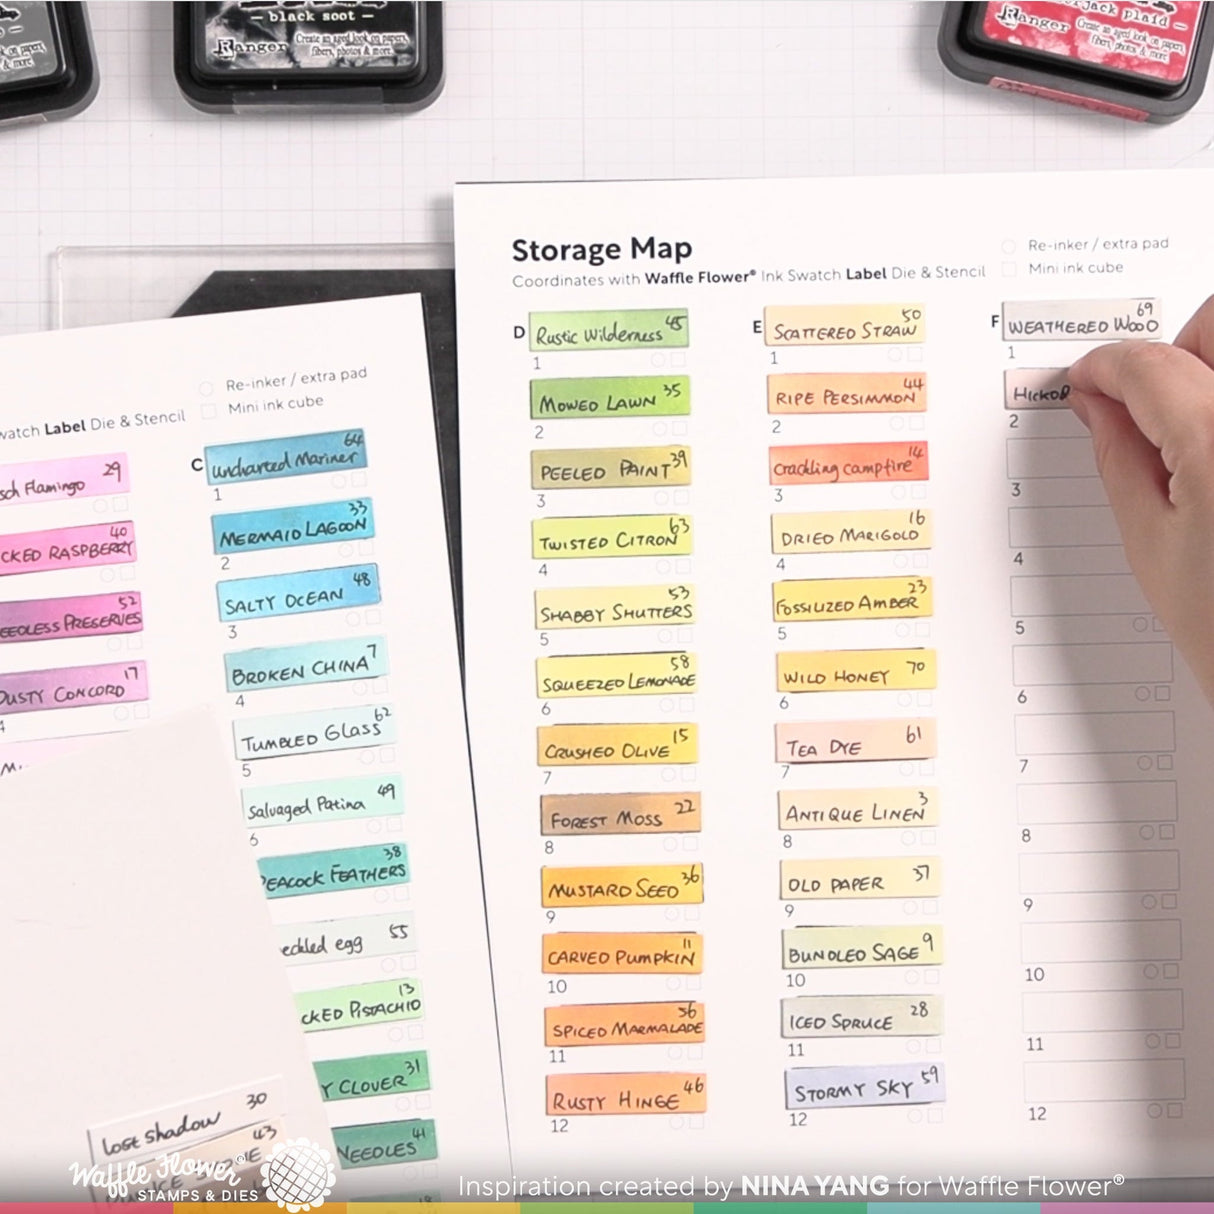 — black soot —
Ranger
Create an aged look on papers,
fibers, photos & more.
& more.
jack plaid —
Ranger
Create an aged look on papers,
fibers, photos & more.
Storage Map
Coordinates with Waffle Flower® Ink Swatch Label Die & Stencil
Re-inker / extra pad
Mini ink cube
D
Rustic Wilderness 45
1
MOWED LAWN 35
2
PEELED PAINT 39
3
TWISTED CITRON 63
4
SHABBY SHUTTERS 53
5
SQUEEZED LEMONADE 58
6
CRUSHED OLIVE 15
7
FOREST MOSS 22
8
MUSTARD SEED 36
9
CARVED PUMPKIN 11
10
SPICED MARMALADE 56
11
RUSTY HINGE 46
12
E
SCATTERED STRAW 50
1
RIPE PERSIMMON 44
2
crackling campfire 14
3
DRIED MARIGOLD 16
4
FOSSILIZED AMBER 23
5
WILD HONEY 70
6
TEA DYE 61
7
ANTIQUE LINEN 3
8
OLD PAPER 37
9
BUNDLED SAGE 9
10
ICED SPRUCE 28
11
STORMY SKY 59
12
F
WEATHERED WOOD 69
1
HICKO
2
3
4
5
6
7
8
9
10
11
12
Re-inker / extra pad
Mini ink cube
watch Label Die & Stencil
sch Flamingo 29
CKED RASPBERRY 40
EEDLESS PRESERVES 52
DUSTY CONCORD 17
4
C
uncharted Mariner 64
1
MERMAID LAGOON 33
2
SALTY OCEAN 48
3
BROKEN CHINA 7
4
TUMBLED GLASS 62
5
Salvaged Patina 49
6
PEACOCK FEATHERS 38
eckled egg 55
CKED PISTACHIO 13
Y CLOVER 31
NEEDLES 41
18
lost shadow 30
43
Waffle Flower®
STAMPS & DIES
Inspiration created by NINA YANG for Waffle Flower®